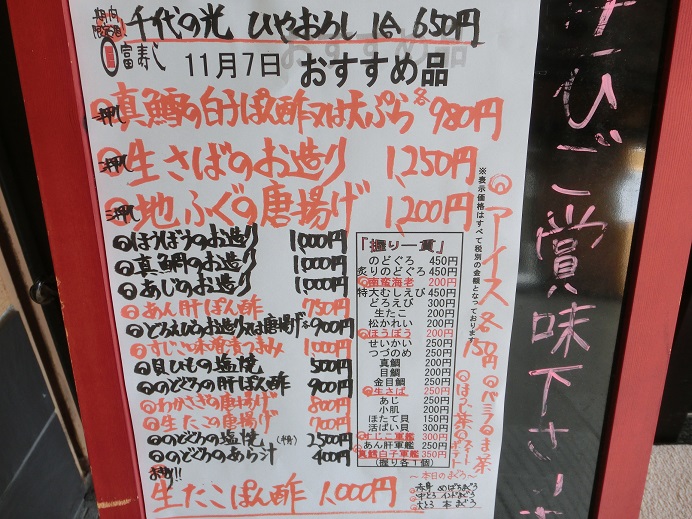 期間限定酒 千代の光 ひやおろし 1合 650円
富寿し 11月7日 おすすめ品
一押し 真鱈の白子ぽん酢又は天ぷら 各 980円
二押し 生さばのお造り 1,250円
三押し 地ふぐの唐揚げ 1,200円
ほうぼうのお造り 1,000円
真鯛のお造り 1,000円
あじのお造り 1,000円
あん肝ぽん酢 750円
どろえびのお造り又は唐揚げ 各900円
すじこ味噌漬つまみ 1,000円
貝ひもの塩焼 500円
のどぐろの肝ぽん酢 900円
わかさぎの唐揚げ 800円
生たこの唐揚げ 700円
のどぐろの塩焼 (半身) 2500円
のどぐろのあら汁 400円
生たこぽん酢 1,000円
『握り一貫』
のどぐろ 450円
炙りのどぐろ 450円
南蛮海老 200円
特大むしえび 450円
どろえび 300円
生たこ 200円
松かれい 200円
ほうぼう 200円
せいかい 250円
つづのめ 250円
真鯛 200円
目鯛 200円
金目鯛 250円
生さば 250円
あじ 250円
小肌 200円
ほたて貝 150円
活ばい貝 300円
すじこ軍艦 300円
あん肝軍艦 250円
真鱈白子軍艦 350円
(握り各1個)
※表示価格はすべて税別の金額となっております
アイス 各150円
バニラ
ほうじ茶
〜本日のまぐろ〜
赤身 めばちまぐろ
中とろ インドまぐろ
大とろ 本まぐろ
ぜひご賞味下さい